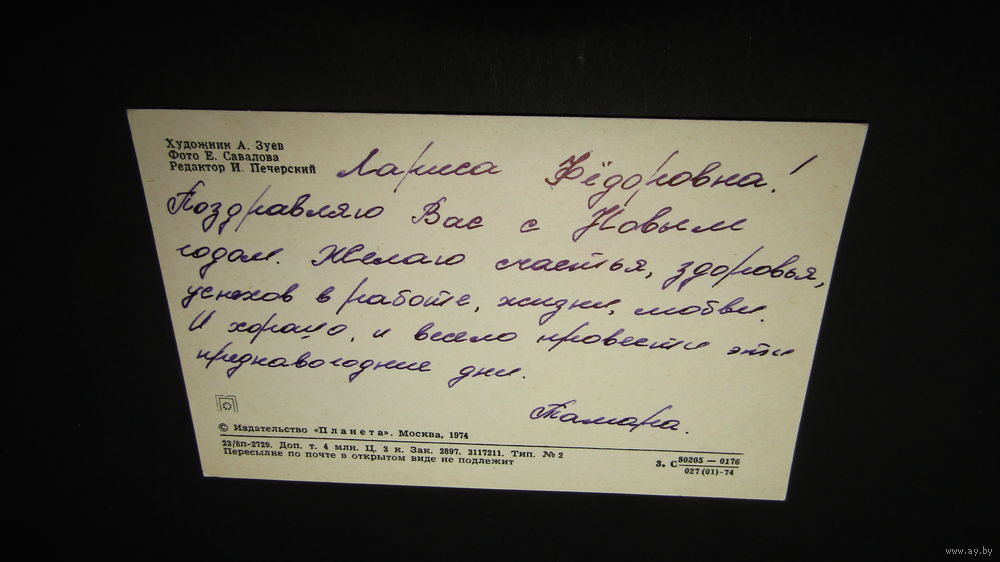 Художник А. Зуев
Фото Е. Савалова
Редактор И. Печерский
Лариса Фёдоровна!
Поздравляю Вас с Новым
годом. Желаю счастья, здоровья,
успехов в работе, жизни, любви.
И хорошо, и весело провести эти
предновогодние дни.
Тамара.
© Издательство «Планета». Москва, 1974
23/8п-2729. Доп. т. 4 млн. Ц. 3 к. Зак. 2897. 3117211. Тип. № 2
Пересылке по почте в открытом виде не подлежит
З. С 80205 — 0176
027 (01)-74
www.ay.by